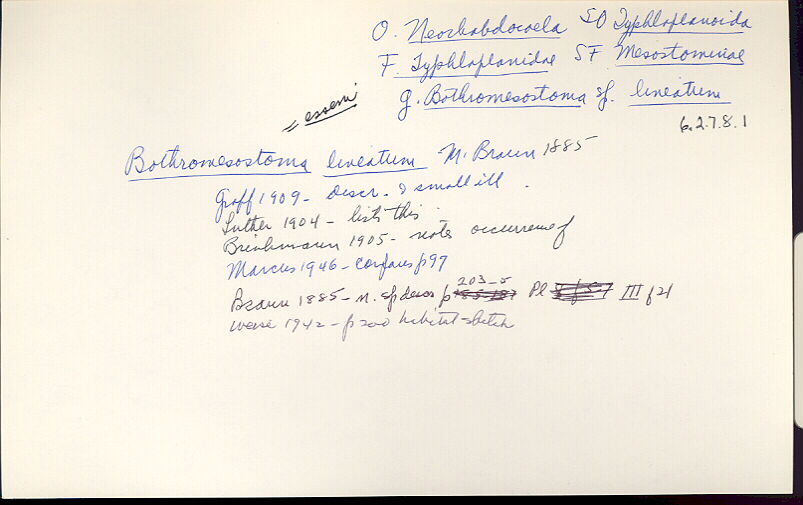 O. Neorhabdocoela SO Typhloplanoida
F. Typhloplanidae SF Mesostominae
g. Bothromesostoma sp. lineatum
= esseni
6.2.7.8.1
Bothromesostoma lineatum M. Braun 1885
Graff 1909 - Descr. & small ill.
Luther 1904 - lists this
Brinkmann 1905 - notes occurrence of
Marcus 1946 - compares p97
203-5
Braun 1885 - n. sp descr p Pl III f 21
Weise 1942 - p200 habitat sketch